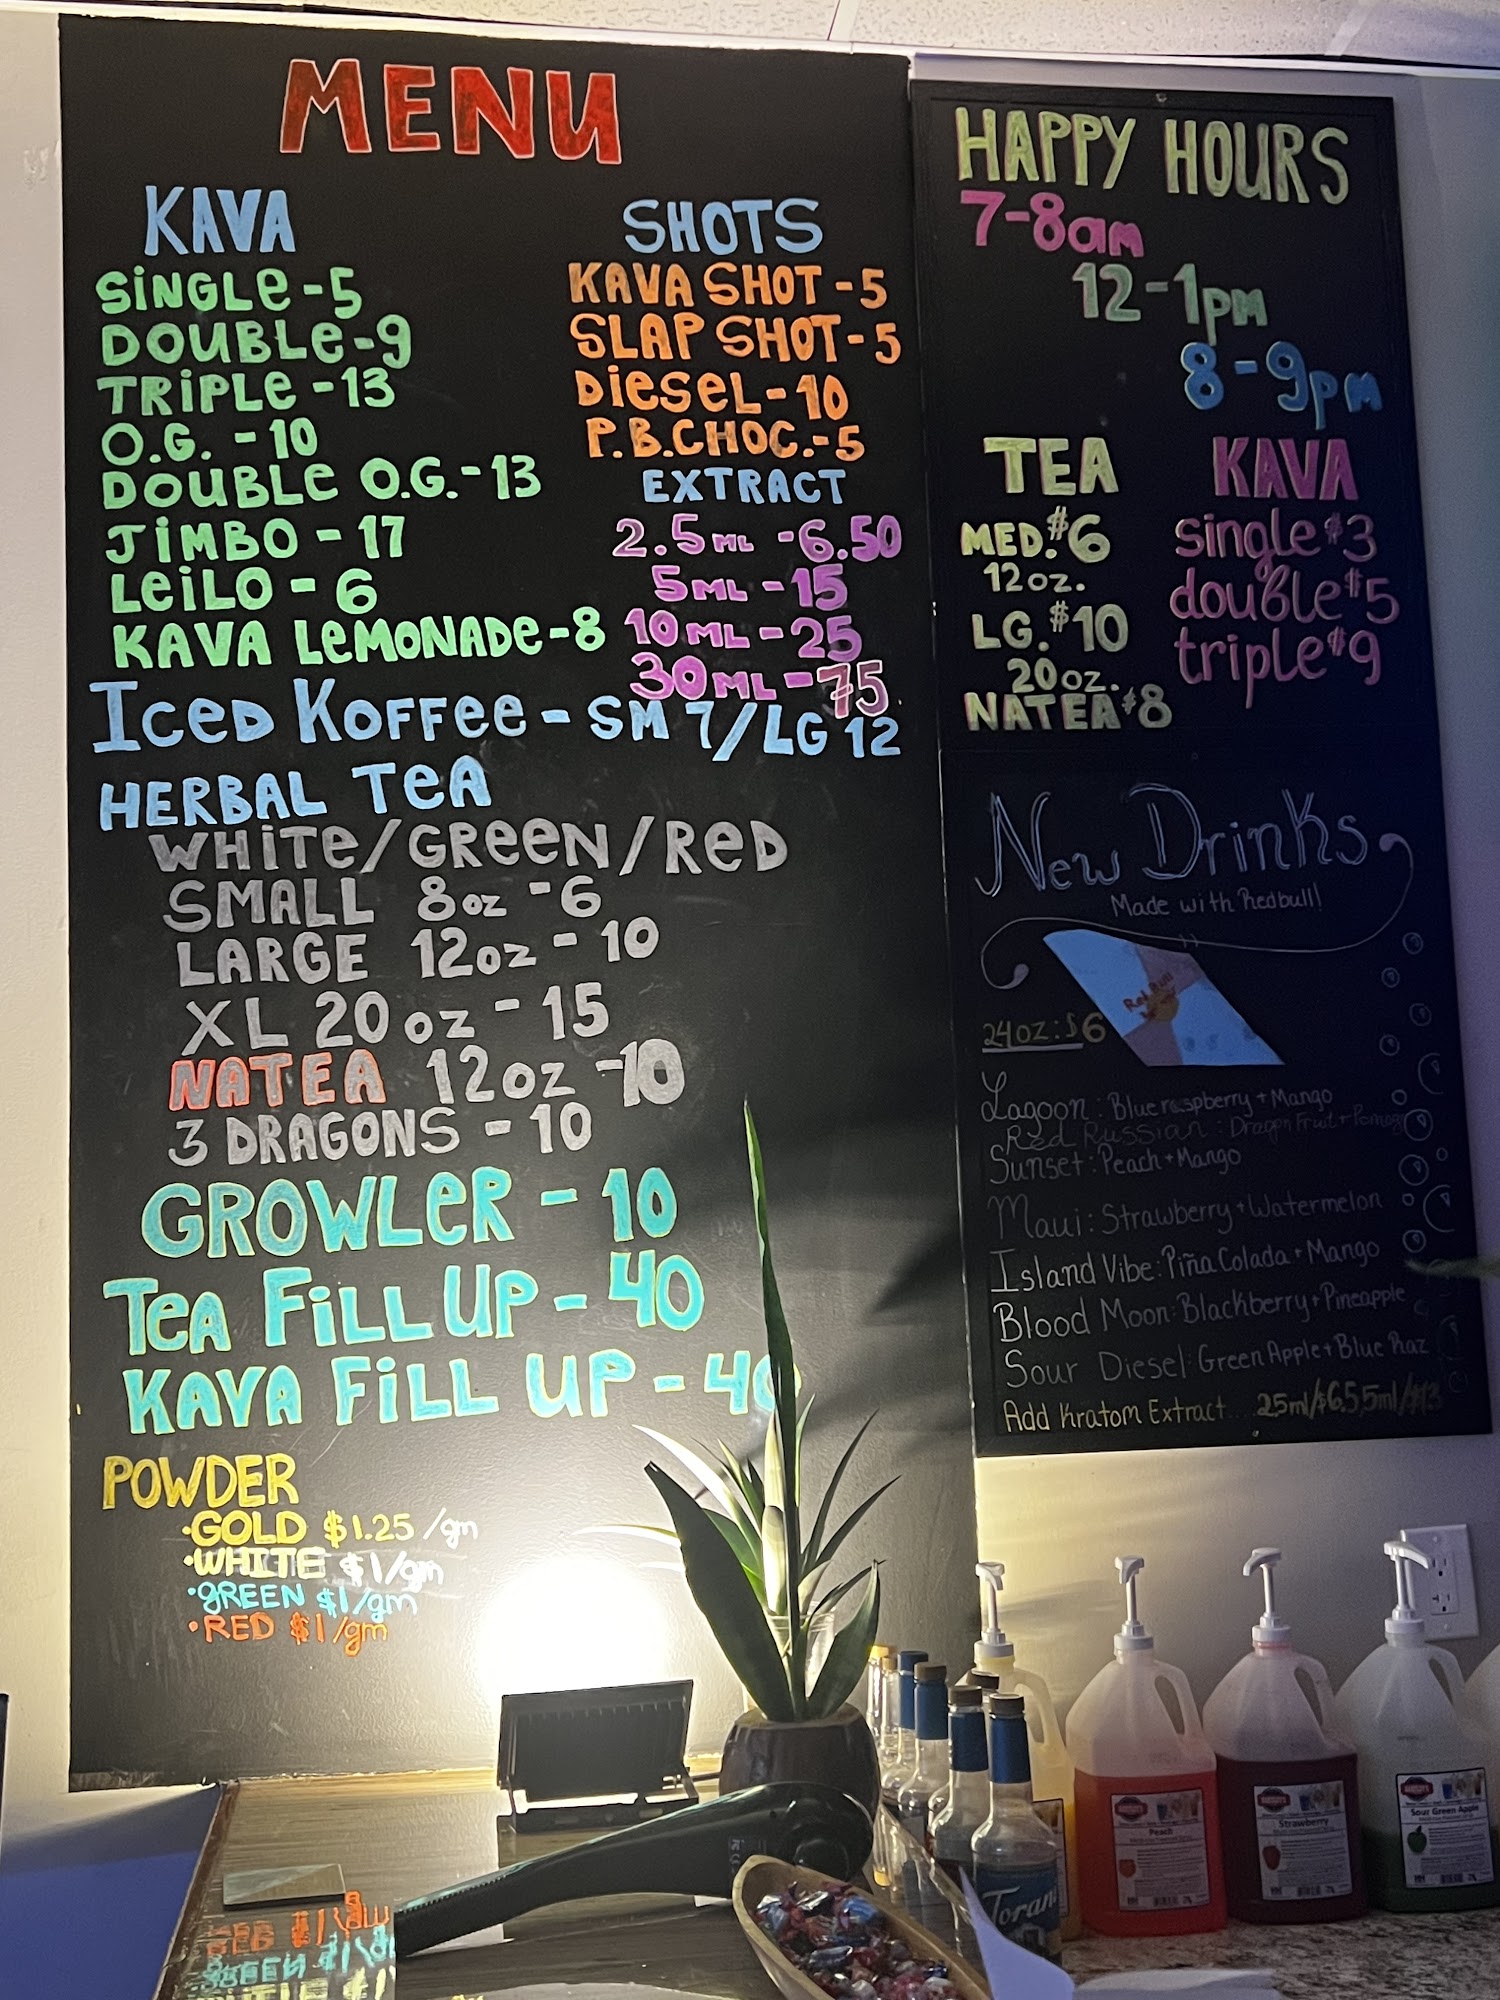 MENU
KAVA
SINGLE - 5
DOUBLE - 9
TRIPLE - 13
O.G. - 10
DOUBLE O.G. - 13
JIMBO - 17
LEILO - 6
KAVA LEMONADE - 8
SHOTS
KAVA SHOT - 5
SLAP SHOT - 5
DIESEL - 10
P.B.CHOC. - 5
EXTRACT
2.5 ML - 6.50
5 ML - 15
10 ML - 25
30 ML - 75
ICED KOFFEE - SM 7/LG 12
HERBAL TEA
WHITE/GREEN/RED
SMALL 8oz - 6
LARGE 12oz - 10
XL 20oz - 15
NATEA 12oz - 10
3 DRAGONS - 10
GROWLER - 10
TEA FILL UP - 40
KAVA FILL UP - 40
POWDER
·GOLD $1.25/gm
·WHITE $1/gm
·GREEN $1/gm
·RED $1/gm
HAPPY HOURS
7-8am
12-1pm
8-9pm
TEA
MED. $6
12oz.
LG. $10
20oz.
NATEA $8
KAVA
single $3
double $5
triple $9
New Drinks
Made with Redbull!
Red Bull
24oz: $6
Lagoon: Blue raspberry + Mango
Red Russian: Dragon Fruit +
Sunset: Peach + Mango
Maui: Strawberry + Watermelon
Island Vibe: Piña Colada + Mango
Blood Moon: Blackberry + Pineapple
Sour Diesel: Green Apple + Blue Raz
Add Kratom Extract....2.5ml/$6.5, 5ml/$13
Peach
Strawberry
Sour Green Apple
Torani
RED $1/gm
GREEN $1/gm